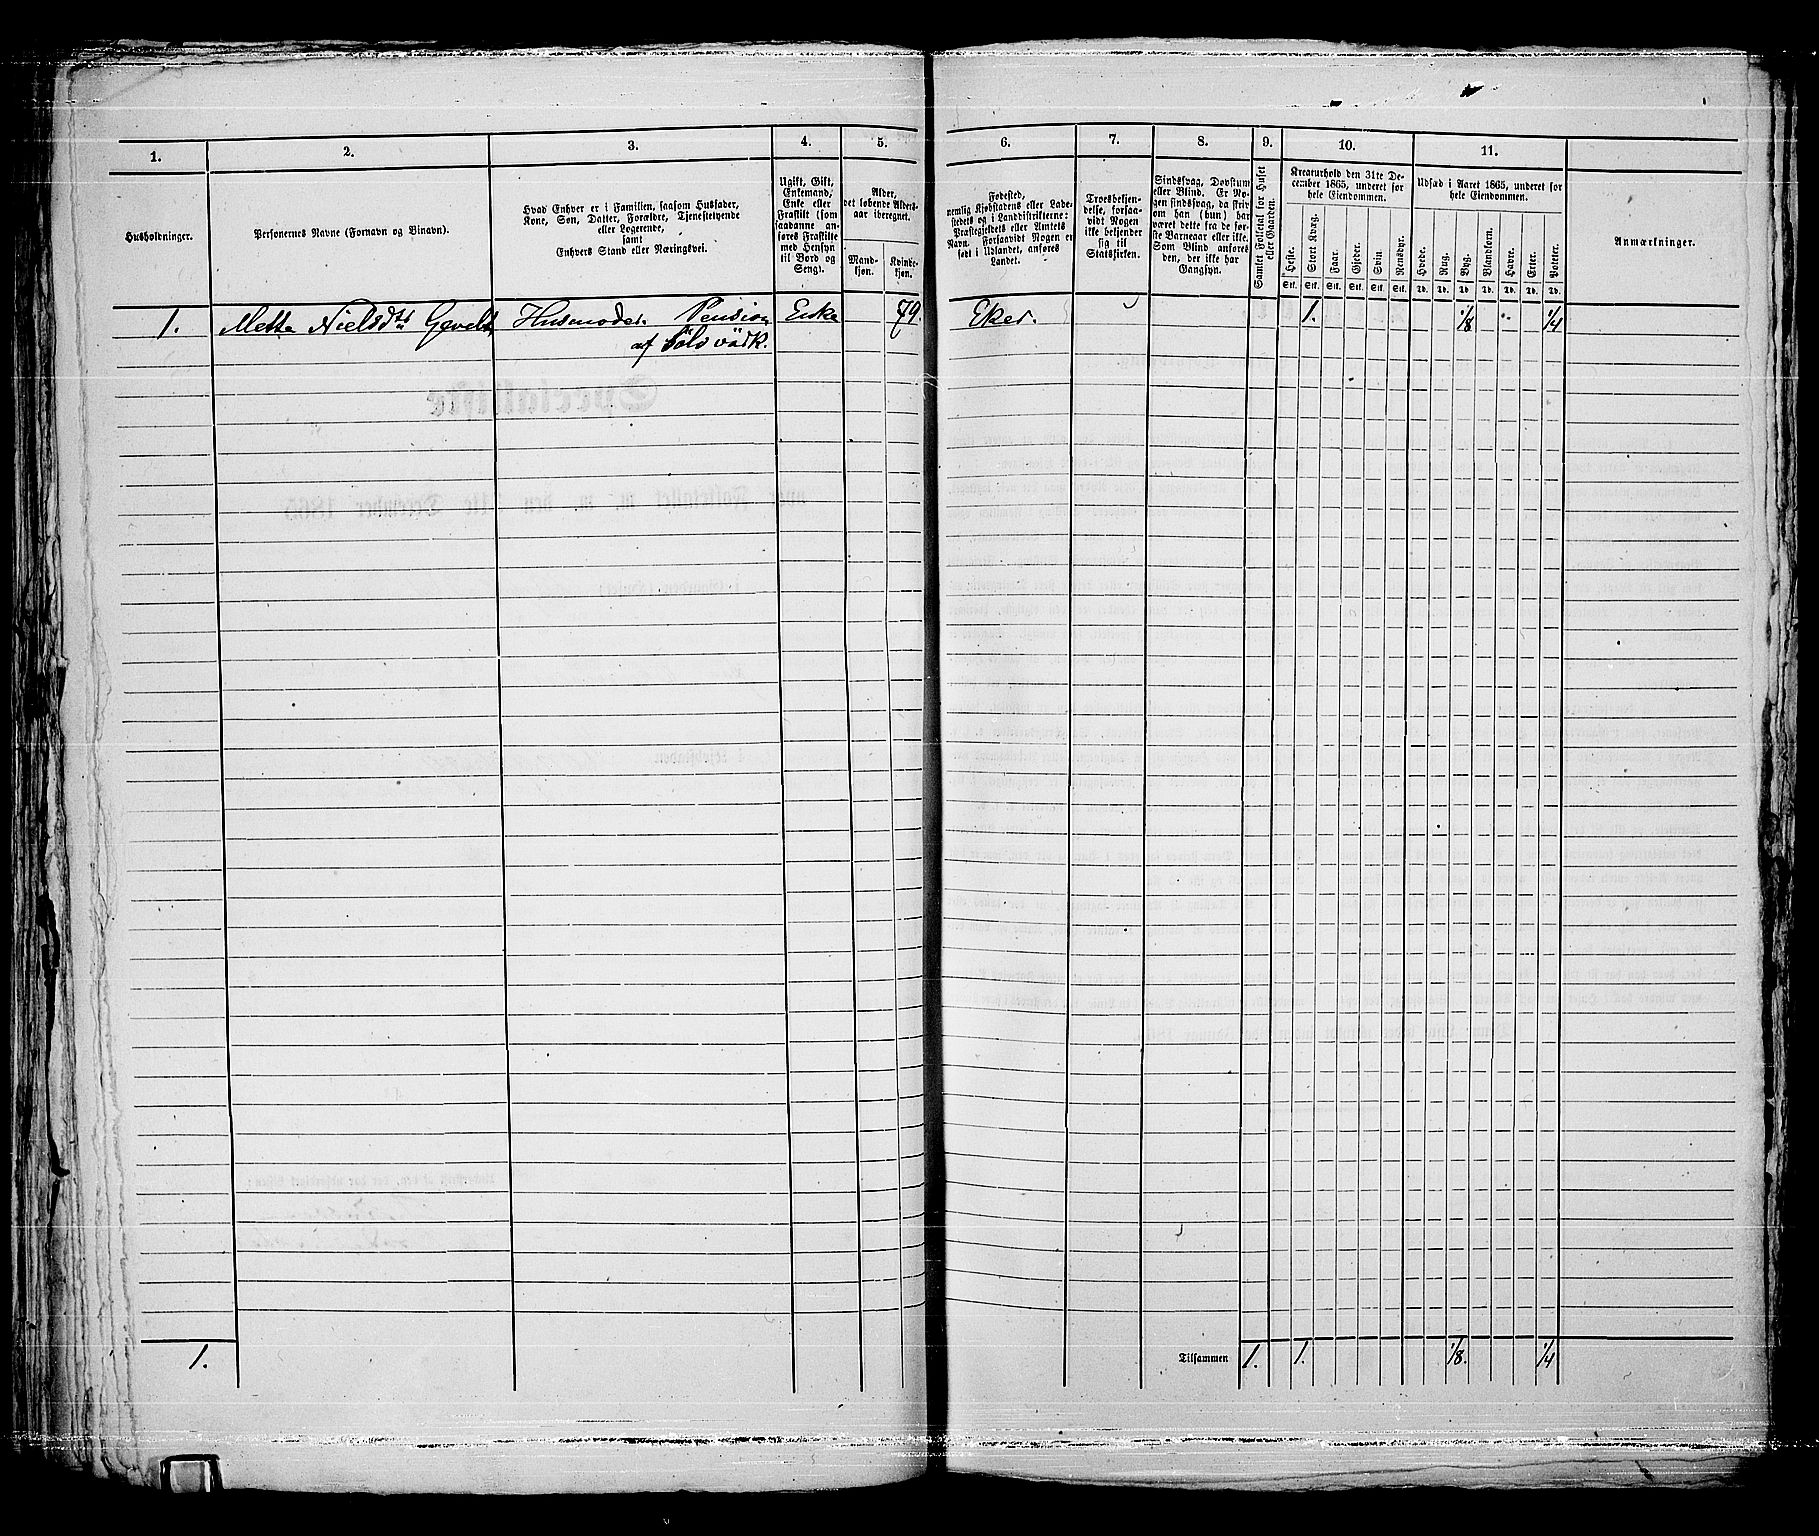 1. 2. 3. 4. 5. 6. 7. 8. 9. 10. 11.
Husholdninger.
Personernes Navne (Fornavn og Binavn).
Hvad Enhver er i Familien, saasom Husfader,
Kone, Søn, Datter, Forældre, Tjenestetyende
eller Logerende,
samt
Enhvers Stand eller Næringsvei.
Ugift, Gift,
Enkemand,
Enke eller
Fraskilt (som
saadanne an-
føres Fraskilte
med Hensyn
til Bord og
Seng).
Alder,
det løbende Alders-
aar iberegnet.
Mand-
kjøn.
Kvinde-
kjøn.
Fødested,
nemlig Kjøbstadens eller Lade-
stedets og i Landdistrikterne:
Præstegjeldets eller Amtets
Navn. Forsaavidt Nogen er
født i Udlandet, anføres
Landet.
Troesbekjen-
delse, forsaa-
vidt Nogen
ikke bekjender
sig til
Statskirken.
Sindssvag, Døvstum
eller Blind. Er No-
gen sindssvag, da skriv
om han (hun) har
været dette fra de før-
ste Barneaar eller ikke.
Som Blind anføres
den, der ikke har
Gangsyn.
Samlet Folketal for Huset
eller Gaarden.
Kreaturhold den 31te De-
cember 1865, underet for
hele Eiendommen.
Heste. Stort Kvæg. Faar. Gjeder. Svin. Rensdyr.
Stk. Stk. Stk. Stk. Stk. Stk.
Udsæd i Aaret 1865, underet for
hele Eiendommen.
Hvede. Rug. Byg. Blandkorn. Havre. Erter. Poteter.
Td. Td. Td. Td. Td. Td. Td.
Anmærkninger.
1. Mette Nielsdtr Gevelt Husmoder. Pension Enke 79. Eker. 1. 1/8 1/4
af Sölvværk.
1. Tilsammen 1. 1. 1/8. 1/4